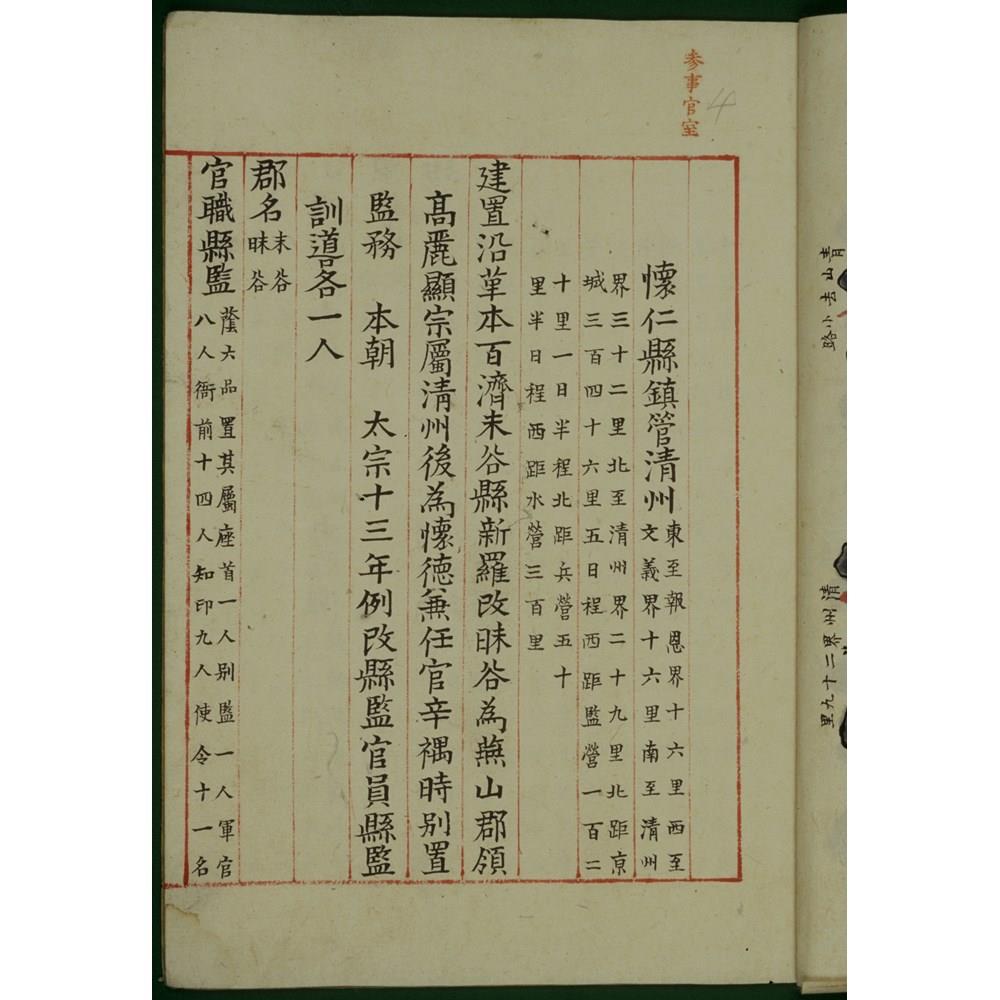 参事官室
4
懷仁縣鎮管清州
東至報恩界十六里西至
文義界十六里南至清州
界三十二里北至清州界二十九里北距京
城三百四十六里五日程西距監營一百二
十里一日半程北距兵營五十
里半日程西距水營三百里
建置沿革本百濟未谷縣新羅改昧谷為燕山郡領
高麗顯宗屬清州後為懷德兼任官辛禑時別置
監務 本朝 太宗十三年例改縣監官員縣監
訓導各一人
郡名
未谷
昧谷
官職縣監
蔭六品置其屬座首一人別監一人軍官
八人衙前十四人知印九人使令十一名
青山去小路
清州界二十九里